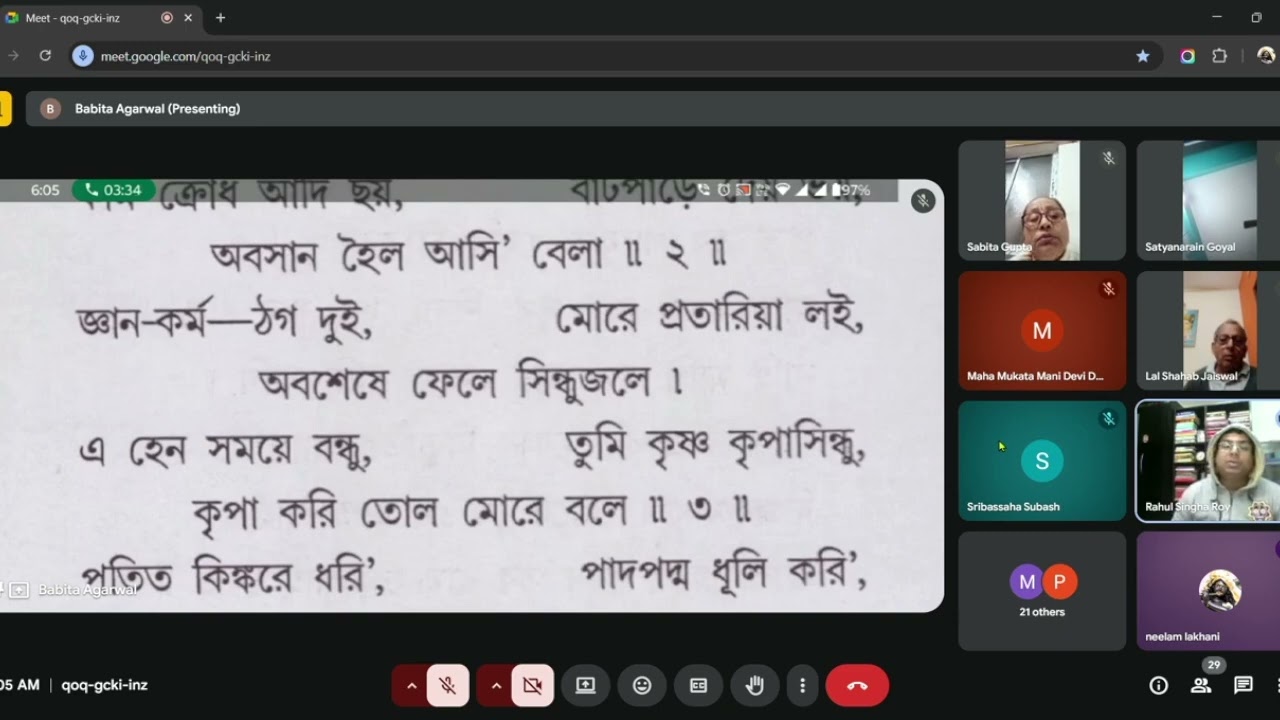 Meet - qoq-gcki-inz
meet.google.com/qoq-gcki-inz
B Babita Agarwal (Presenting)
6:05 03:34 97%
ক্রোধ আদি ছয়, বাটপাড়ে
অবসান হৈল আসি’ বেলা ॥ ২ ॥
জ্ঞান-কর্ম—ঠগ দুই, মোরে প্রতারিয়া লই,
অবশেষে ফেলে সিন্ধুজলে ।
এ হেন সময়ে বন্ধু, তুমি কৃষ্ণ কৃপাসিন্ধু,
কৃপা করি তোল মোরে বলে ॥ ৩ ॥
পতিত কিঙ্করে ধরি’, পাদপদ্ম ধূলি করি’,
Babita Agarwal
Sabita Gupta
Satyanarain Goyal
M
Maha Mukata Mani Devi D...
Lal Shahab Jaiswal
S
Sribassaha Subash
Rahul Singha Roy
M P
21 others
neelam lakhani
05 AM | qoq-gcki-inz
29